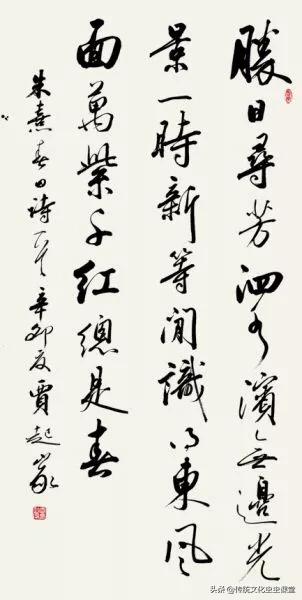 勝日尋芳泗水濱無邊光
景一時新等閒識得東風
面萬紫千紅總是春
朱熹春日詩一首辛卯夏賈起家
头条 @传统文化虫虫课堂